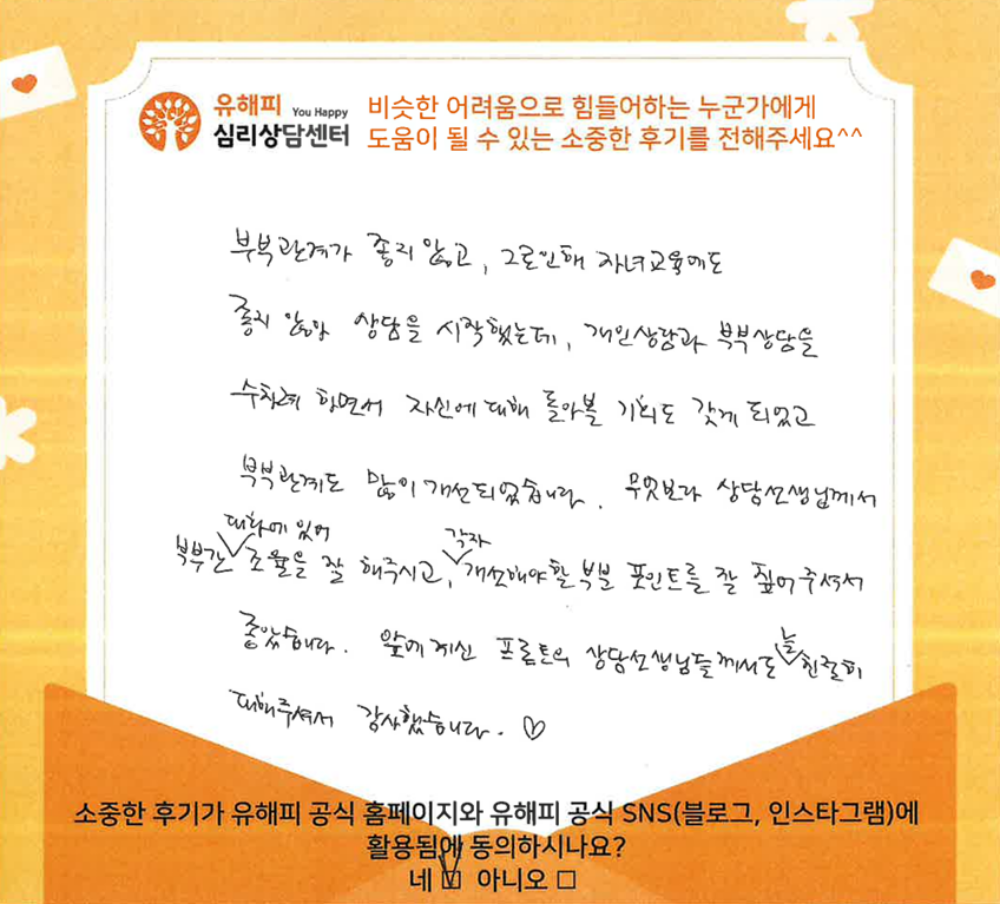 유해피 You Happy
심리상담센터
비슷한 어려움으로 힘들어하는 누군가에게
도움이 될 수 있는 소중한 후기를 전해주세요^^
부부관계가 좋지 않고, 그로인해 자녀교육에도
좋지 않아 상담을 시작했는데, 개인상담과 부부상담을
수차례 하면서 자신에 대해 돌아볼 기회도 갖게 되었고
부부관계도 많이 개선되었습니다. 무엇보다 상담선생님께서
대화에 있어 각자
부부간 조율을 잘 해주시고, 개선해야할 부분 포인트를 잘 짚어주셔서
좋았습니다. 앞에 계신 프론트의 상담선생님들께서도 늘 친절히
대해주셔서 감사했습니다. ♡
소중한 후기가 유해피 공식 홈페이지와 유해피 공식 SNS(블로그, 인스타그램)에
활용됨에 동의하시나요?
네 ☑ 아니오 □